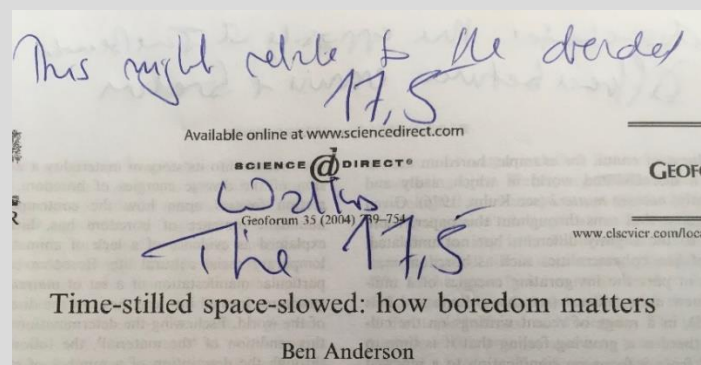 This might relate to the dreaded
17,5
Available online at www.sciencedirect.com
SCIENCE DIRECT®
GEOFO
Walks
Geoforum 35 (2004) 739–754
www.elsevier.com/loca
The 17,5
Time-stilled space-slowed: how boredom matters
Ben Anderson